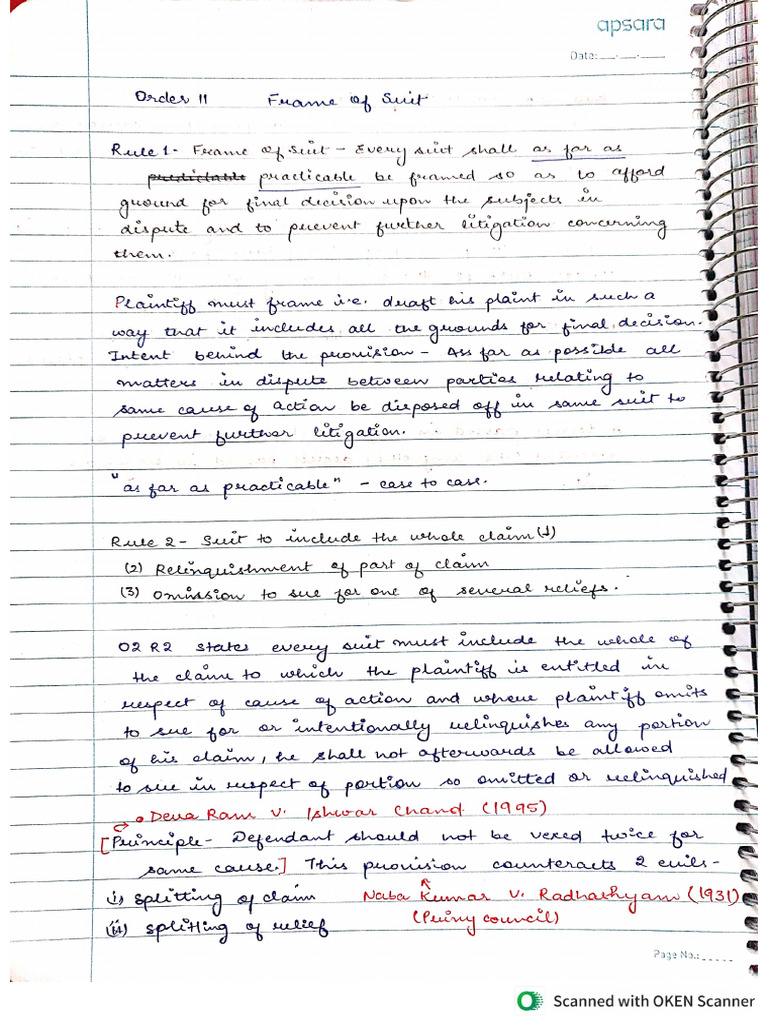 apsara
Date:__.__.____
Order II Frame of Suit
Rule 1- Frame of Suit - Every suit shall as far as
predictable practicable be framed so as to afford
ground for final decision upon the subjects in
dispute and to prevent further litigation concerning
them.
Plaintiff must frame i.e. draft his plaint in such a
way that it includes all the grounds for final decision.
Intent behind the provision - Ass far as possible all
matters in dispute between parties relating to
same cause of action be disposed off in same suit to
prevent further litigation.
"as far as practicable" - case to case.
Rule 2- Suit to include the whole claim (1)
(2) Relinquishment of part of claim
(3) Omission to sue for one of several reliefs.
O2 R2 states every suit must include the whole of
the claim to which the plaintiff is entitled in
respect of cause of action and where plaintiff omits
to sue for or intentionally relinquishes any portion
of his claim, he shall not afterwards be allowed
to sue in respect of portion so omitted or relinquished
Deva Ram v. Ishwar Chand (1995)
[Principle- Defendant should not be vexed twice for
same cause.] This provision counteracts 2 evils-
i) splitting of claim Naba Kumar v. Radhashyam (1931)
(ii) splitting of relief (Priny council)
Page No.:_____
Scanned with OKEN Scanner